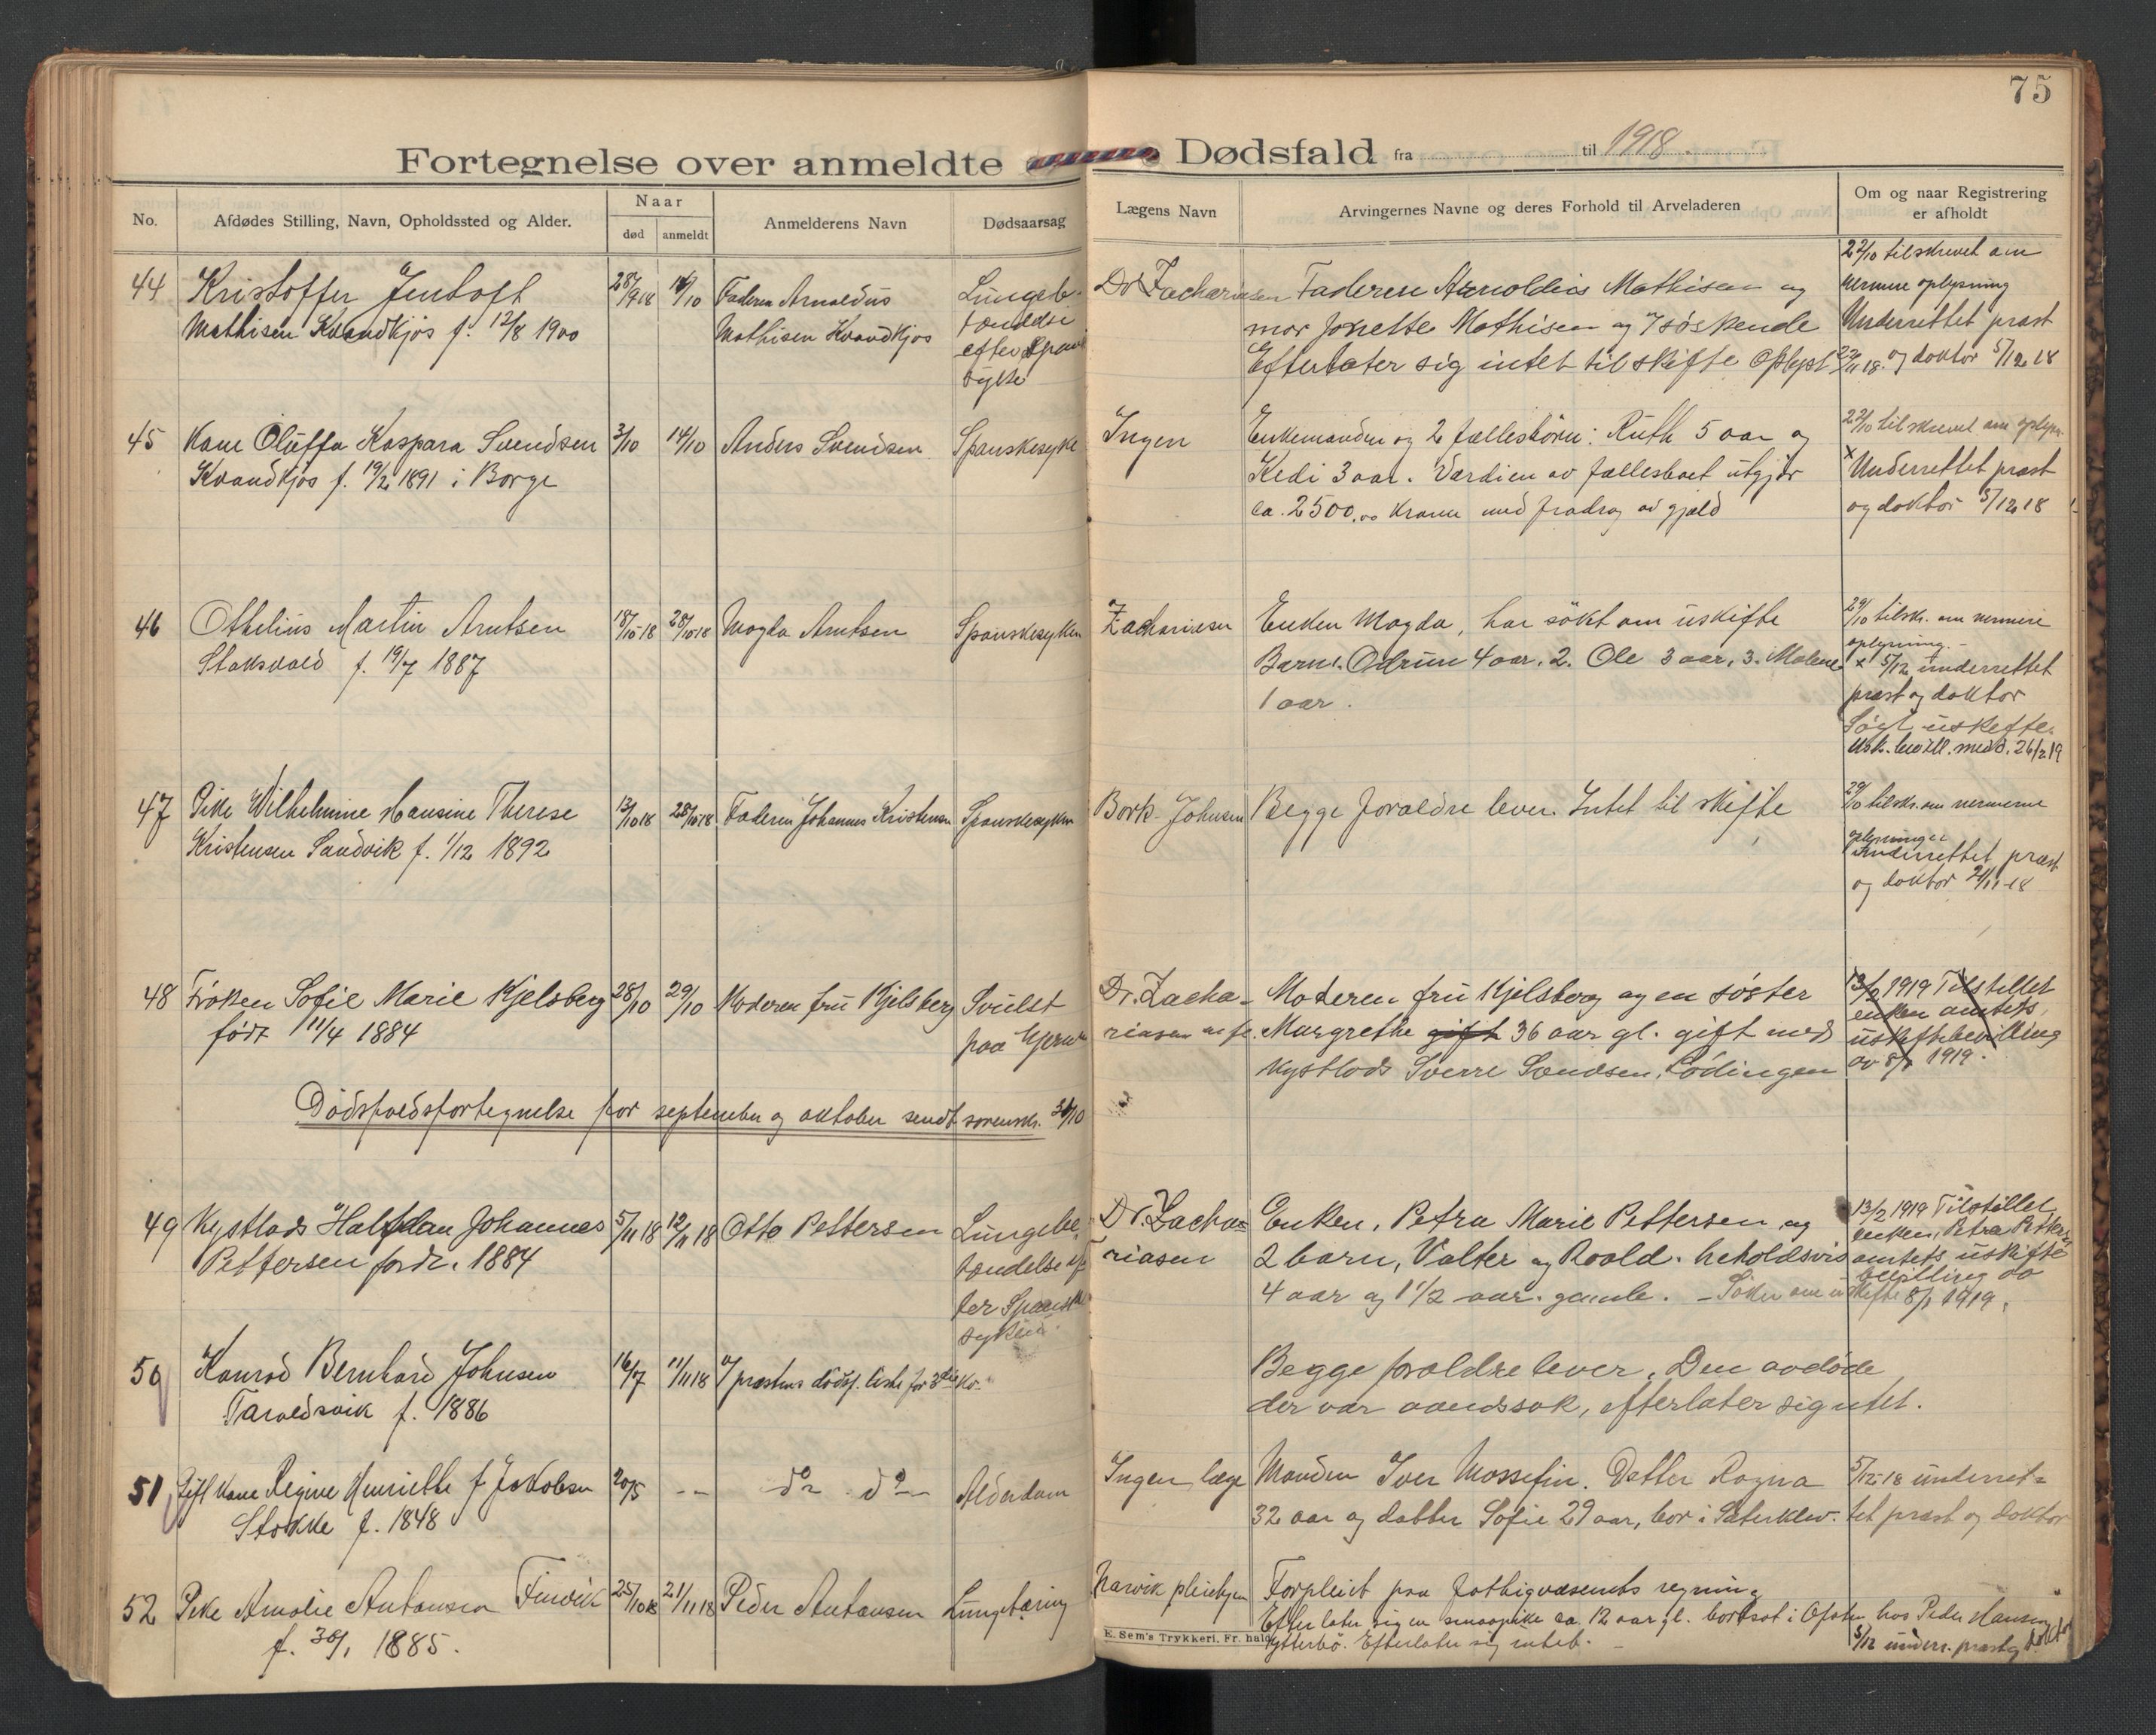 75
Fortegnelse over anmeldte Dødsfald fra til 1918.
No.
Afdødes Stilling, Navn, Opholdssted og Alder.
Naar
død
anmeldt
Anmelderens Navn
Dødsaarsag
Lægens Navn
Arvingernes Navne og deres Forhold til Arveladeren
Om og naar Registrering
er afholdt
44
Kristoffer Jentoft
Mathisen Kvandkjøs f. 12/8 1900
28/9 18
14/10
Faderen Arnoldus
Mathisen Kvandkjøs
Lungebe-
tændelse
efter Spansk
syke
Dr Zachariasen
Faderen Arnoldus Mathisen og
mor Jonette Mathisen og 7 søskende
Efterlater sig intet til skifte Oplyst 22/11 18.
22/10 tilskrevet om
nermere oplysning
Underrettet prest
og doktor 5/12 18
45
Kone Oluffa Kaspara Svendsen
Kvandkjøs f. 19/2 1891 i Borge
3/10
14/10
Anders Svendsen
Spanskesyke
Ingen
Enkemanden og 2 fællesbørn: Ruth 5 aar og
Kedi 3 aar. Værdien av fællesboet utgjør
ca. 2500,00 kroner med fradrag av gjæld
22/10 tilskrevet om oplysn.
x Underrettet prest
og doktor 5/12 18
46
Othelius Martin Arntsen
Staksvold f. 19/7 1887
18/10-18
28/10-18
Magda Arntsen
Spanskesyken
Zachariasen
Enken Magda, har søkt om uskifte
Barn 1. Odrun 4 aar, 2. Ole 3 aar, 3. Malene
1 aar.
29/10 tilskr. om nermere
oplysning.-
x 5/12 underrettet
prest og doktor
Søgt uskifte.
Usk. bevill. medd. 26/2 19
47
Pike Wilhelmine Hansine Therese
Kristensen Sandvik f. 1/12 1892
13/10 18
28/10-18
Faderen Johannes Kristensen
Spanskesyken
Bork-Johnsen
Begge foræeldre lever. Intet til skifte
29/10 tilskr. om nermerne
oplysninger
Underrettet prest
og doktor 21/11-18
48
Frøken Sofie Marie Kjelsberg
født 11/4 1884
28/10
29/10
Moderen fru Kjelsberg
Svulst
paa Hjernen
Dr. Zacha-
riasen
Moderen fru Kjelsberg og en søster
Margrethe gift 36 aar gl. gift med
Kystlods Sverre Svendsen, Lødingen
13/2 1919 Tilstillet
enken amtets
uskiftebevilling
av 8/1 1919.
Dødsfaldsfortegnelse for september og oktober sendt sorenskr. 31/10
49
Kystlods Halfdan Johannes
Pettersen født. 1884
5/11 18
12/11 18
Otto Pettersen
Lungebe-
tændelse ef-
ter Spanske
syken.
Dr. Zacha-
riasen
Enken, Petra Marie Pettersen og
2 barn, Valter og Roald. heholdsvis
4 aar og 1 1/2 aar. gamle. - Søker om uskifte
13/2 1919 Tilstillet
enken, Petra Petters.
amtets uskifte
bevilling av
8/1 1919.
50
Konrad Bernhard Johnsen
Taraldsvik f. 1886
16/7
11/11 18
prestens dødsf. liste for 3die kv.
Begge foraldre lever. Den avdøde
der var aandssvak, efterlater sig intet.
51
Gift kone Regine Henriette f Jakobsen
Stokke f. 1848
20/5
- -
do do
Alderdom
Ingen læge
Manden Iver Mossefin. Datter Ragna
32 aar og datter Sofie 29 aar, bor i Sæterklev.
5/12-18 underret-
tet prest og doktor
52
Pike Amalie Antonsen Finvik
f. 30/1 1885.
25/10 18
21/11 18
Peder Antonsen
Lungetæring
Narvik pleiehjem
Forpleiet paa fattigvæsenets regning
Efterlater sig en smaapike ca. 12 aar gl. bortsat i Ofoten hos Peder Hansen
Ytterbø. Efterlater sig intet. -
5/12 underr. prest og doktor
E. Sem's Trykkeri, Fr.hald